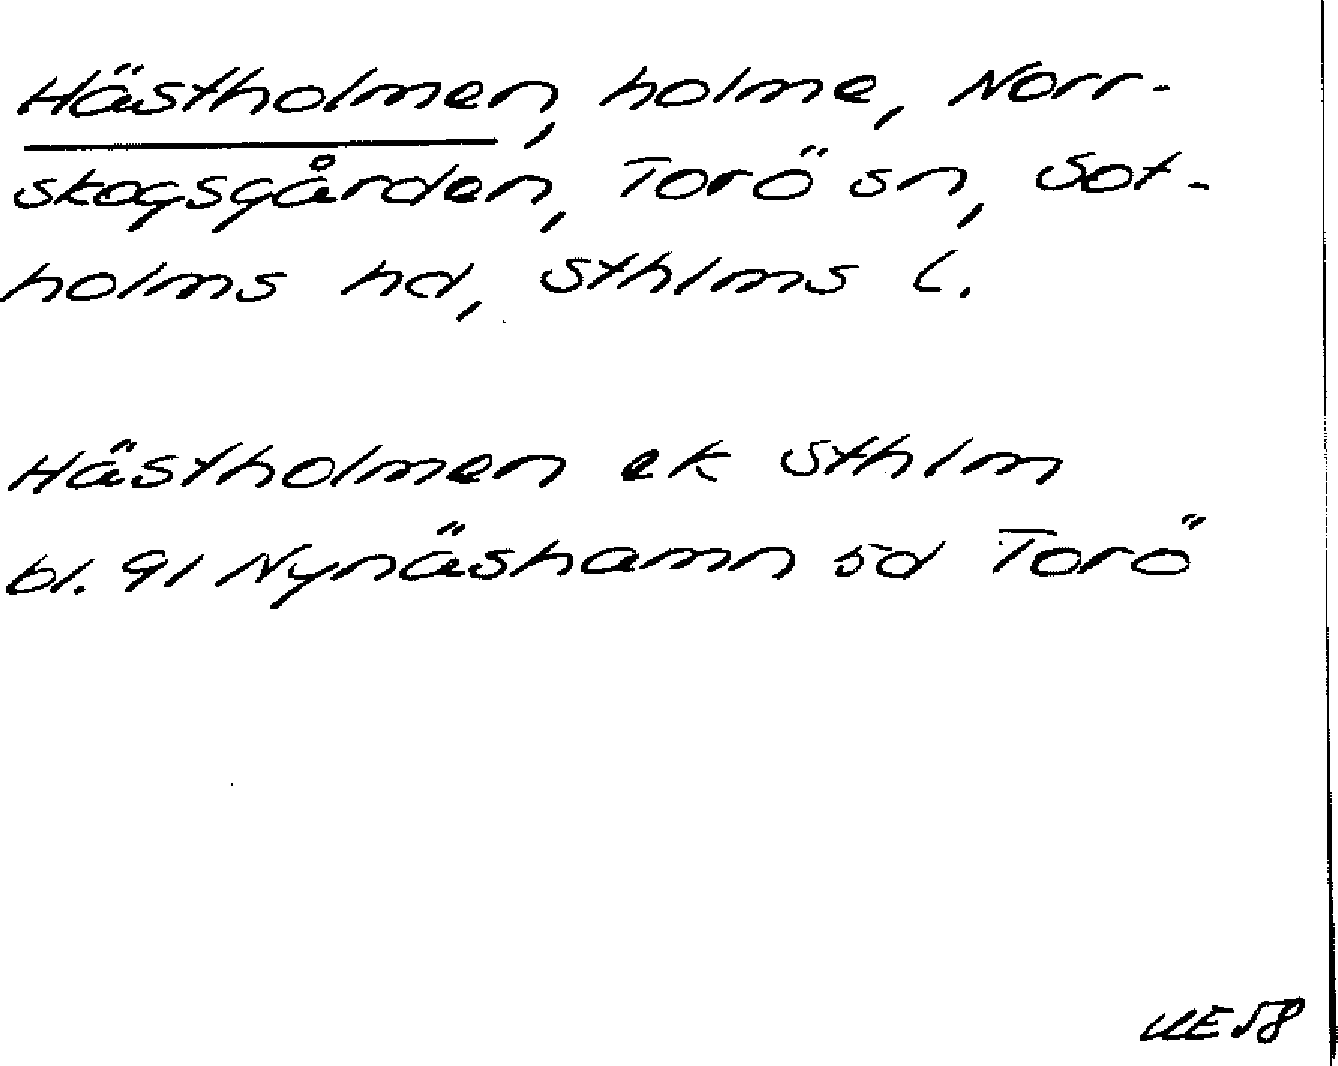 Hästholmen, holme, Norr-
skogsgården, Torö sn, Sot-
holms hd, Sthlms l.
Hästholmen ek Sthlm
bl. 91 Nynäshamn sd Torö
UE58